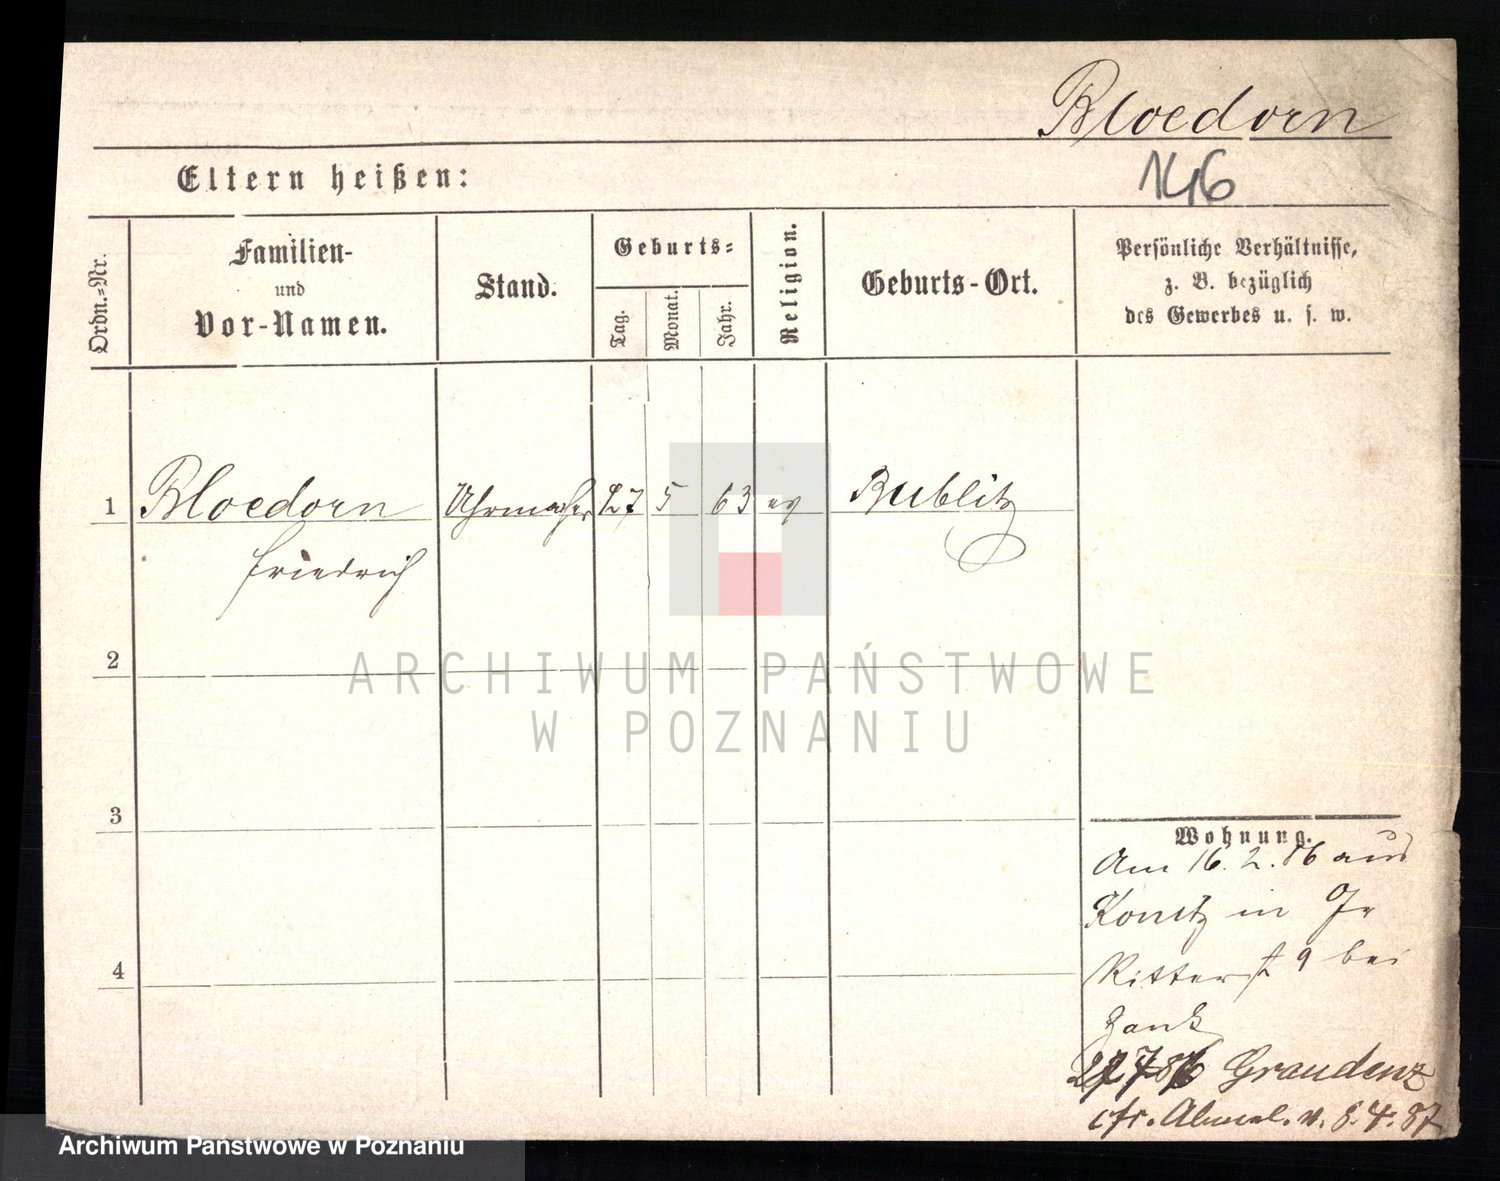 Bloedorn
146
Eltern heißen:
Ordn.=Nr.
Familien-
und
Vor-Namen.
Stand.
Geburts=
Tag.
Monat.
Jahr.
Religion.
Geburts-Ort.
Persönliche Verhältnisse,
z. B. bezüglich
des Gewerbes u. s. w.
1 Bloedorn Uhrmacher 27 5 63 ev Bublitz
Friedrich
2
3
4
Wohnung.
Am 16.2.86 aus
Konitz in
Ritterst 9 bei
Zank
86 Graudenz
cfr. Abmel. v. 8.4.87
ARCHIWUM PAŃSTWOWE
W POZNANIU
Archiwum Państwowe w Poznaniu